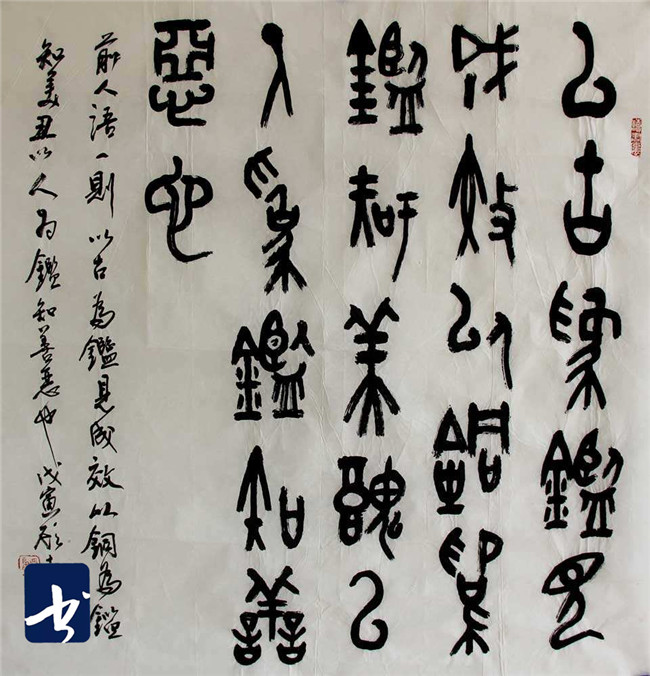 以古為鑑見
成效以銅為
鑑知美醜以
人為鑑知善
惡也
前人語一則以古為鑑見成效以銅為鑑
知美丑以人为鑑知善惡也戊寅
书